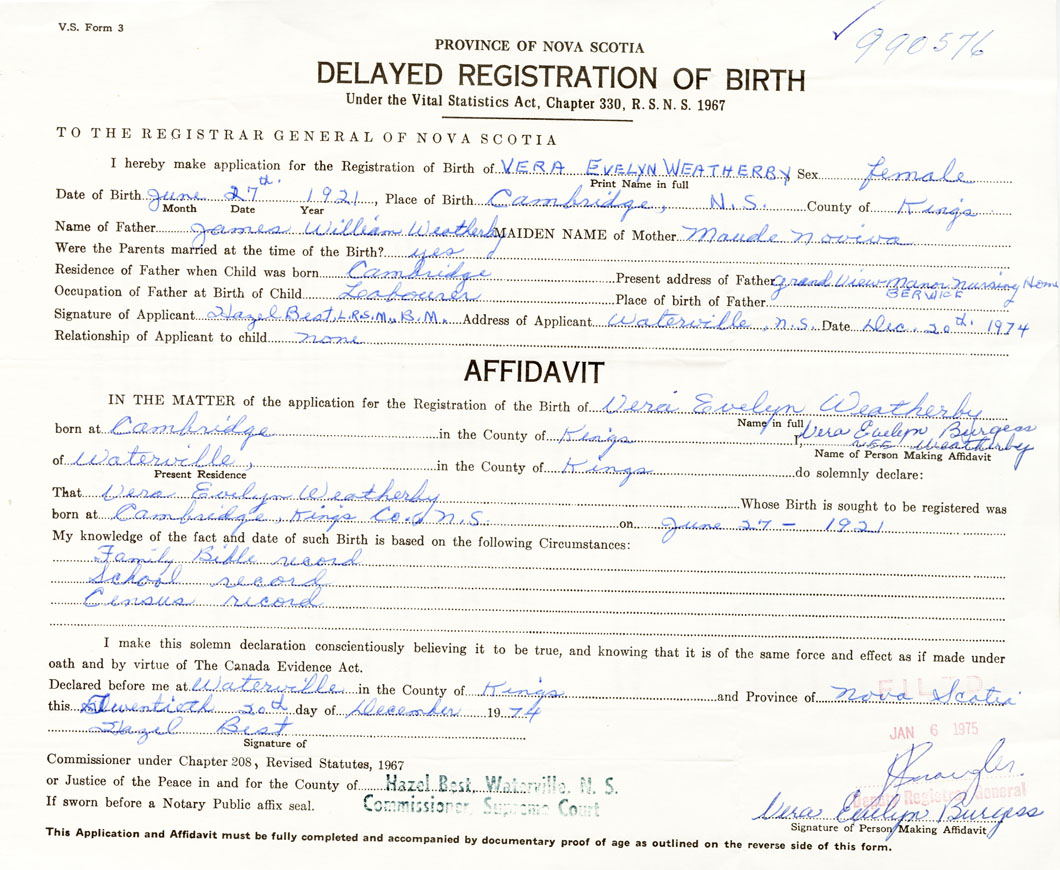 V.S. Form 3
✓ 990576
PROVINCE OF NOVA SCOTIA
DELAYED REGISTRATION OF BIRTH
Under the Vital Statistics Act, Chapter 330, R. S. N. S. 1967
TO THE REGISTRAR GENERAL OF NOVA SCOTIA
I hereby make application for the Registration of Birth of VERA EVELYN WEATHERBY Sex female
Print Name in full
Date of Birth June 27th. 1921, Place of Birth Cambridge, N.S. County of Kings
Month Date Year
Name of Father James William Weatherby MAIDEN NAME of Mother Maude Noviva
Were the Parents married at the time of the Birth? yes
Residence of Father when Child was born Cambridge Present address of Father Grand View Manor Nursing Home
SERVICE
Occupation of Father at Birth of Child Labourer Place of birth of Father
Signature of Applicant Hazel Best, L.R.S.M., B.M. Address of Applicant Waterville, N.S. Date Dec. 20th. 1974
Relationship of Applicant to child none
AFFIDAVIT
IN THE MATTER of the application for the Registration of the Birth of Vera Evelyn Weatherby
Name in full
born at Cambridge in the County of Kings I, Vera Evelyn Burgess
NEE Weatherby
Name of Person Making Affidavit
of Waterville, in the County of Kings do solemnly declare:
Present Residence
That Vera Evelyn Weatherby Whose Birth is sought to be registered was
born at Cambridge, Kings Co. N.S. on June 27 - 1921
My knowledge of the fact and date of such Birth is based on the following Circumstances:
Family Bible record
School record
Census record
I make this solemn declaration conscientiously believing it to be true, and knowing that it is of the same force and effect as if made under
oath and by virtue of The Canada Evidence Act.
Declared before me at Waterville in the County of Kings and Province of Nova Scotia
FILED
this Twentieth 20th day of December 1974
JAN 6 1975
Hazel Best
Signature of
Commissioner under Chapter 208, Revised Statutes, 1967
or Justice of the Peace in and for the County of Hazel Best, Waterville, N. S.
Commissioner, Supreme Court
If sworn before a Notary Public affix seal.
Deputy Registrar General
Vera Evelyn Burgess
Signature of Person Making Affidavit
This Application and Affidavit must be fully completed and accompanied by documentary proof of age as outlined on the reverse side of this form.